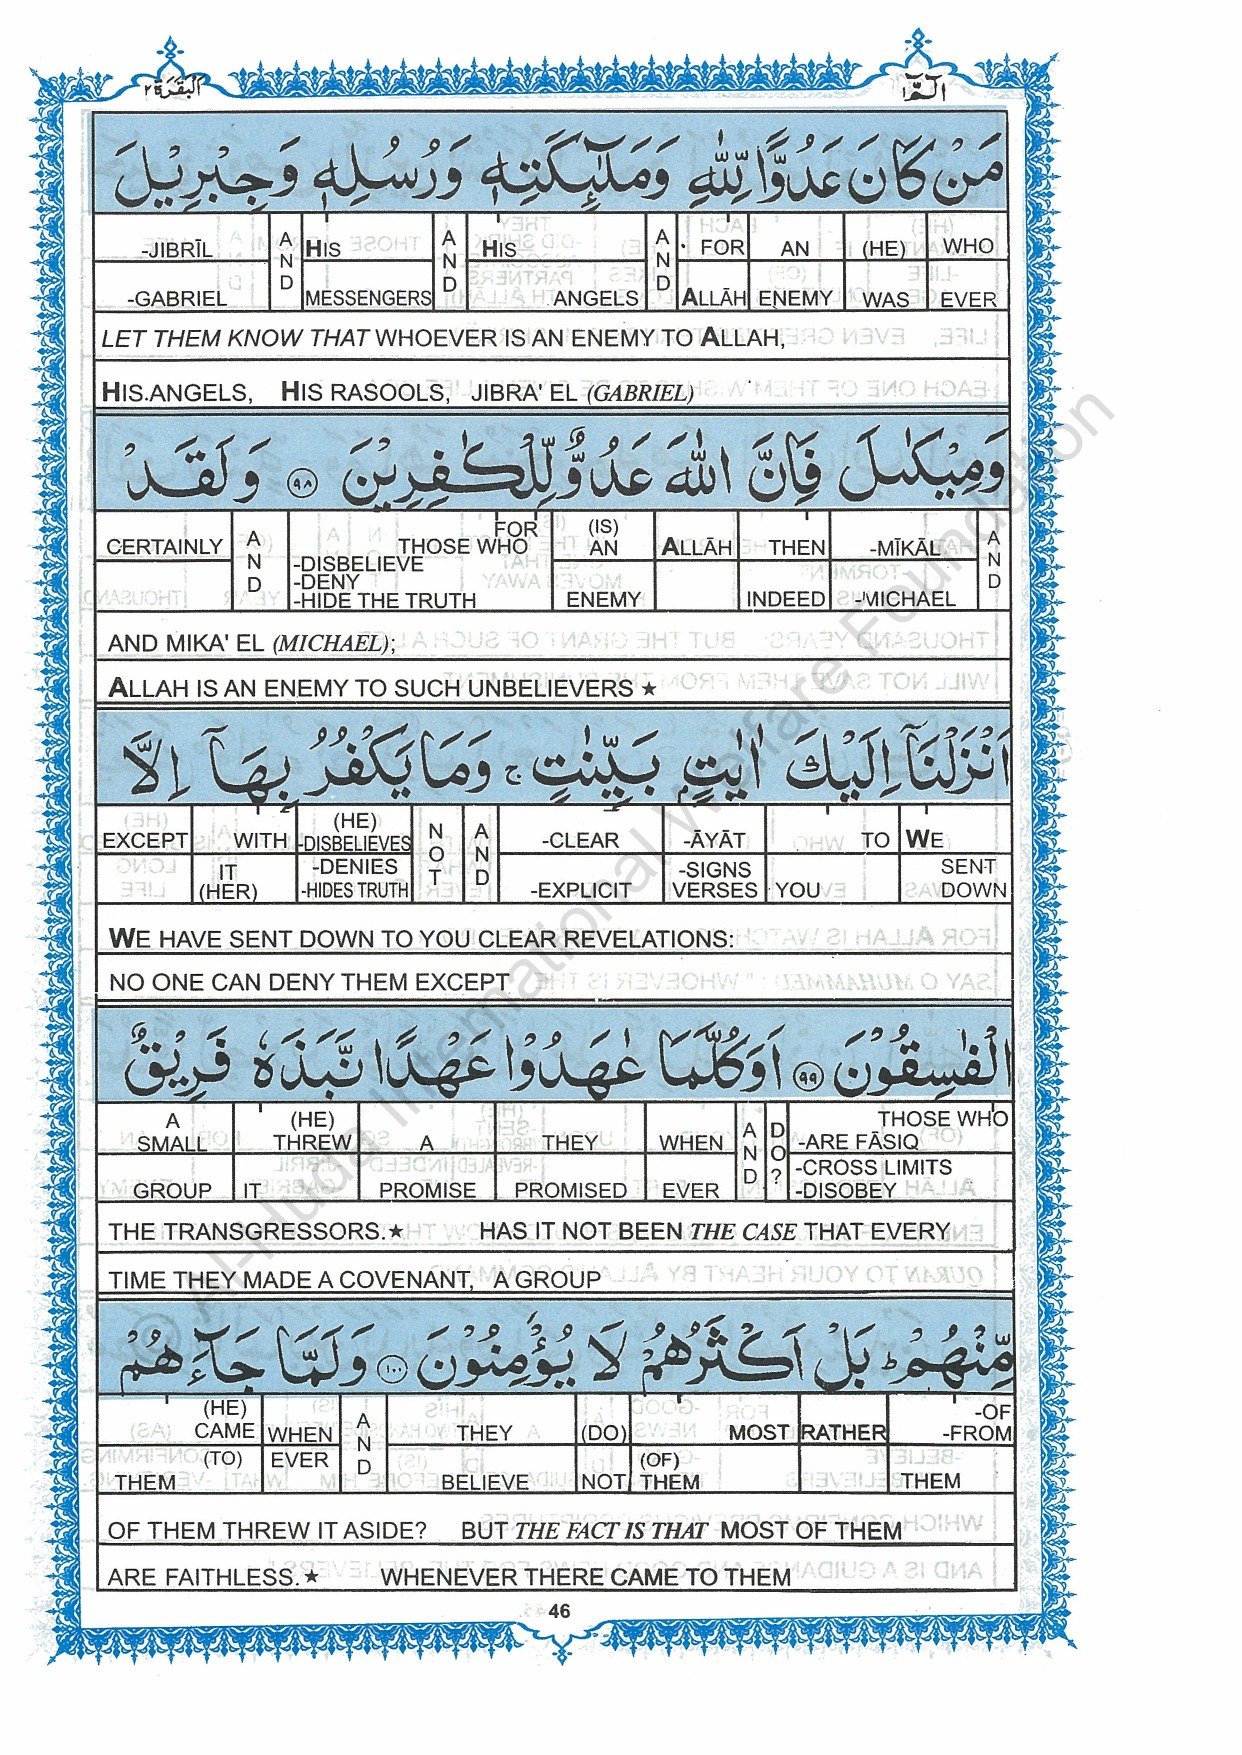 البقرة ٢
الٓمّٓ ١
مَنْ كَانَ عَدُوًّا لِّلّٰهِ وَمَلٰٓئِكَتِهٖ وَرُسُلِهٖ وَجِبْرِيْلَ
-JIBRĪL AND HIS AND HIS AND FOR AN (HE) WHO
-GABRIEL MESSENGERS ANGELS ALLĀH ENEMY WAS EVER
LET THEM KNOW THAT WHOEVER IS AN ENEMY TO ALLAH,
HIS.ANGELS, HIS RASOOLS, JIBRA' EL (GABRIEL)
وَمِيْكٰىلَ فَاِنَّ اللّٰهَ عَدُوٌّ لِّلْكٰفِرِيْنَ ٩٨ وَلَقَدْ
CERTAINLY AND FOR THOSE WHO (IS) AN ALLĀH THEN -MĪKĀL AND
-DISBELIEVE
-DENY
-HIDE THE TRUTH ENEMY INDEED -MICHAEL
AND MIKA' EL (MICHAEL);
ALLAH IS AN ENEMY TO SUCH UNBELIEVERS ★
اَنْزَلْنَآ اِلَيْكَ اٰيٰتٍۢ بَيِّنٰتٍ ۚ وَمَا يَكْفُرُ بِهَآ اِلَّا
EXCEPT WITH (HE) -DISBELIEVES NOT AND -CLEAR -ĀYĀT TO WE
IT (HER) -DENIES -HIDES TRUTH -EXPLICIT -SIGNS VERSES YOU SENT DOWN
WE HAVE SENT DOWN TO YOU CLEAR REVELATIONS:
NO ONE CAN DENY THEM EXCEPT
الْفٰسِقُوْنَ ٩٩ اَوَكُلَّمَا عٰهَدُوْا عَهْدًا نَّبَذَهٗ فَرِيْقٌ
A SMALL (HE) THREW A THEY WHEN AND DO? THOSE WHO -ARE FĀSIQ
GROUP IT PROMISE PROMISED EVER -CROSS LIMITS -DISOBEY
THE TRANSGRESSORS.★ HAS IT NOT BEEN THE CASE THAT EVERY
TIME THEY MADE A COVENANT, A GROUP
مِّنْهُمْ ؕ بَلْ اَكْثَرُهُمْ لَا يُؤْمِنُوْنَ ١٠٠ وَلَمَّا جَآءَهُمْ
(HE) CAME WHEN AND THEY (DO) MOST RATHER -OF -FROM
(TO) THEM EVER BELIEVE NOT (OF) THEM THEM
OF THEM THREW IT ASIDE? BUT THE FACT IS THAT MOST OF THEM
ARE FAITHLESS.★ WHENEVER THERE CAME TO THEM
46
© Al-Huda International Welfare Foundation